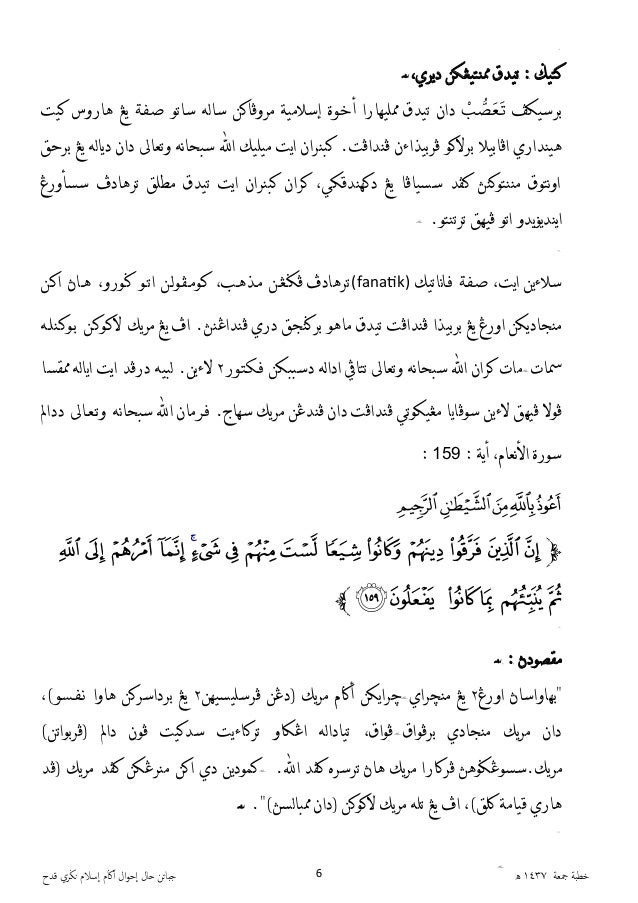 كتيݢ : تيدق ممنتيڠكن ديري،
برسيكڤ تَعَصُّبْ دان تيدق ممليهارا أخوة إسلامية مروڤاكن ساله ساتو صفة يڠ هاروس كيت
هينداري اڤابيلا برلاكو ڤربيذاءن ڤنداڤت. كبنران ايت ميليك الله سبحانه وتعالى دان دياله يڠ برحق
اونتوق مننتوكن كڤد سسياڤا يڠ دكهندقكي، كران كبنران ايت تيدق مطلق ترهادڤ سسأورڠ
اينديۏيدو اتو ڤيهق ترتنتو.
سلاءين ايت، صفة فاناتيك (fanatik)ترهادڤ ڤݢڠن مذهب، كومڤولن اتو ݢورو، هاڽ اكن
منجاديكن اورڠ يڠ بربيذا ڤنداڤت تيدق ماهو برݢنجق دري ڤنداڠن. اڤ يڠ مريك لاكوكن بوكنله
سمات-مات كران الله سبحانه وتعالى تتاڤي اداله دسببكن فكتور٢ لاءين. لبيه درڤد ايت اياله ممقسا
ڤولا ڤيهق لاءين سوڤايا مڠيكوتي ڤنداڤت دان ڤندڠن مريك سهاج. فرمان الله سبحانه وتعالى ددالم
سورة الأنعام، أية : 159 :
أَعُوذُ بِٱللَّهِ مِنَ ٱلشَّيْطَٰنِ ٱلرَّجِيمِ
﴿ إِنَّ ٱلَّذِينَ فَرَّقُوا۟ دِينَهُمْ وَكَانُوا۟ شِيَعًا لَّسْتَ مِنْهُمْ فِى شَىْءٍ ۚ إِنَّمَآ أَمْرُهُمْ إِلَى ٱللَّهِ
ثُمَّ يُنَبِّئُهُم بِمَا كَانُوا۟ يَفْعَلُونَ ١٥٩ ﴾
مقصودڽ :
"بهاواساڽ اورڠ٢ يڠ منچراي-چرايكن أݢام مريك (دڠن ڤرسليسيهن٢ يڠ برداسركن هاوا نفسو)،
دان مريك منجادي برڤواق-ڤواق، تياداله اڠكاو تركاءيت سديكيت ڤون دالم (ڤربواتن)
مريك.سسوڠݢوهڽ ڤركارا مريك هاڽ ترسره كڤد الله. كمودين دي اكن منرڠكن كڤد مريك (ڤد
هاري قيامة كلق)، اڤ يڠ تله مريك لاكوكن (دان ممبالسڽ)".
خطبة جمعة ١٤٣٧ ه 6 جباتن حال إحوال أݢام إسلام نݢري قدح